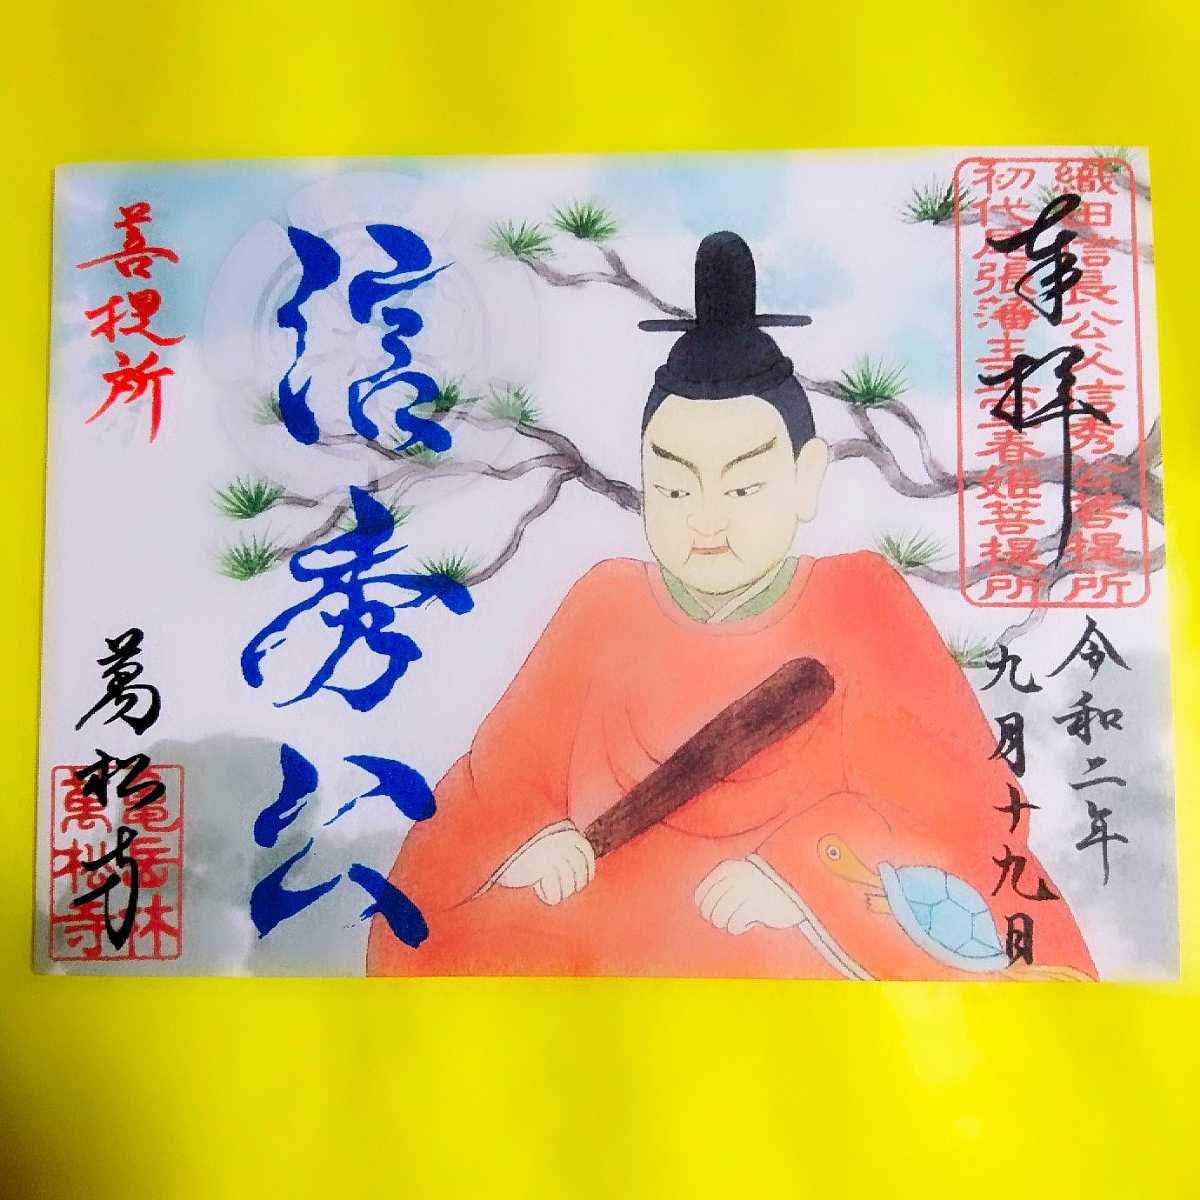 奉拝
織田信長公父信秀公菩提所
初代尾張藩主正室春姫菩提所
令和二年
九月十九日
信秀公
菩提所
萬松寺
亀岳林
萬松寺